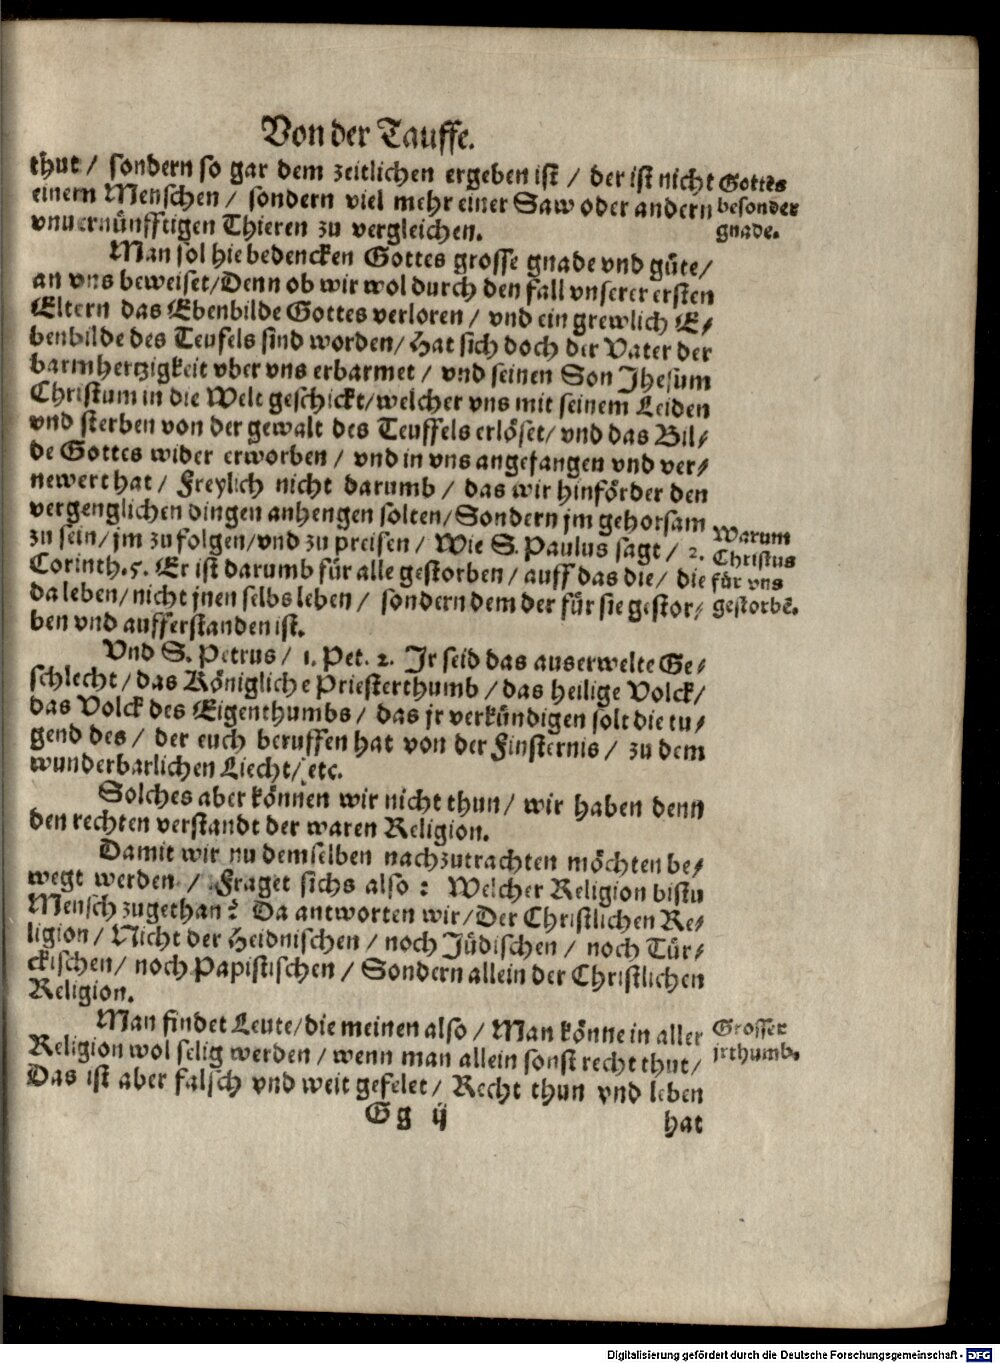 Von der Tauffe.
thut / sondern so gar dem zeitlichen ergeben ist / der ist nicht
einem Menschen / sondern viel mehr einer Saw oder andern
vnuernünfftigen Thieren zu vergleichen.
Gottes
besonder
gnade.
Man sol hie bedencken Gottes grosse gnade vnd güte /
an vns beweiset / Denn ob wir wol durch den fall vnserer ersten
Eltern das Ebenbilde Gottes verloren / vnd ein grewlich E⸗
benbilde des Teufels sind worden / Hat sich doch der Vater der
barmhertzigkeit vber vns erbarmet / vnd seinen Son Jhesum
Christum in die Welt geschickt / welcher vns mit seinem Leiden
vnd sterben von der gewalt des Teuffels erlöset / vnd das Bil⸗
de Gottes wider erworben / vnd in vns angefangen vnd ver⸗
newert hat / Freylich nicht darumb / das wir hinförder den
vergenglichen dingen anhengen solten / Sondern jm gehorsam
zu sein / jm zu folgen / vnd zu preisen / Wie S. Paulus sagt / 2.
Corinth. 5. Er ist darumb für alle gestorben / auff das die / die
da leben / nicht jnen selbs leben / sondern dem der für sie gestor⸗
ben vnd aufferstanden ist.
Warum
Christus
für vns
gestorbē.
Vnd S. Petrus / 1. Pet. 2. Jr seid das auserwelte Ge⸗
schlecht / das Königliche Priesterthumb / das heilige Volck /
das Volck des Eigenthumbs / das jr verkündigen solt die tu⸗
gend des / der euch beruffen hat von der Finsternis / zu dem
wunderbarlichen Liecht / etc.
Solches aber können wir nicht thun / wir haben denn
den rechten verstandt der waren Religion.
Damit wir nu demselben nachzutrachten möchten be⸗
wegt werden / Fraget sichs also : Welcher Religion bistu
Mensch zugethan? Da antworten wir / Der Christlichen Re⸗
ligion / Nicht der Heidnischen / noch Jüdischen / noch Tür⸗
ckischen / noch Papistischen / Sondern allein der Christlichen
Religion.
Man findet Leute / die meinen also / Man könne in aller
Religion wol selig werden / wenn man allein sonst recht thut /
Das ist aber falsch vnd weit gefelet / Recht thun vnd leben
Grosser
jrthumb.
Gg ij
hat
Digitalisierung gefördert durch die Deutsche Forschungsgemeinschaft - DFG